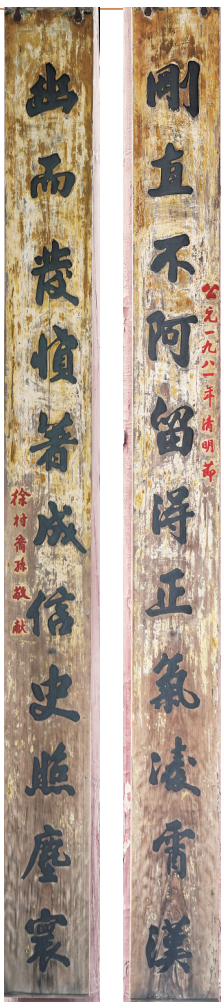 剛直不阿留得正氣凌霄漢
公元一九八一年清明節
幽而發憤著成信史照塵寰
徐村裔孫敬献